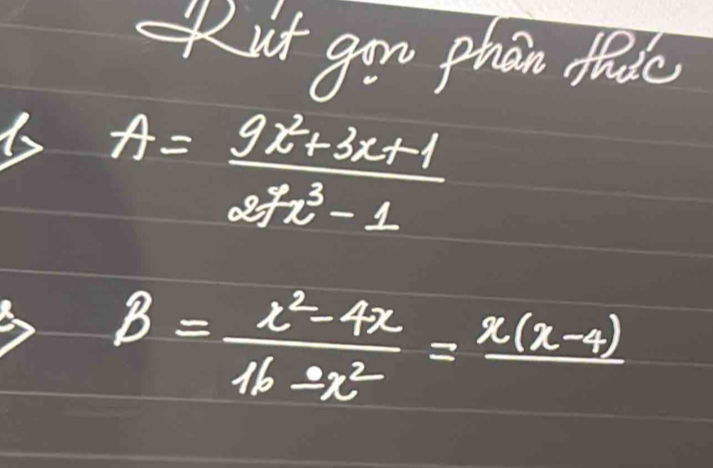 Rút gọn phân thức
1> A = (9x²+3x+1)/(27x³-1)
2> B = (x²-4x)/(16-x²) = x(x-4)